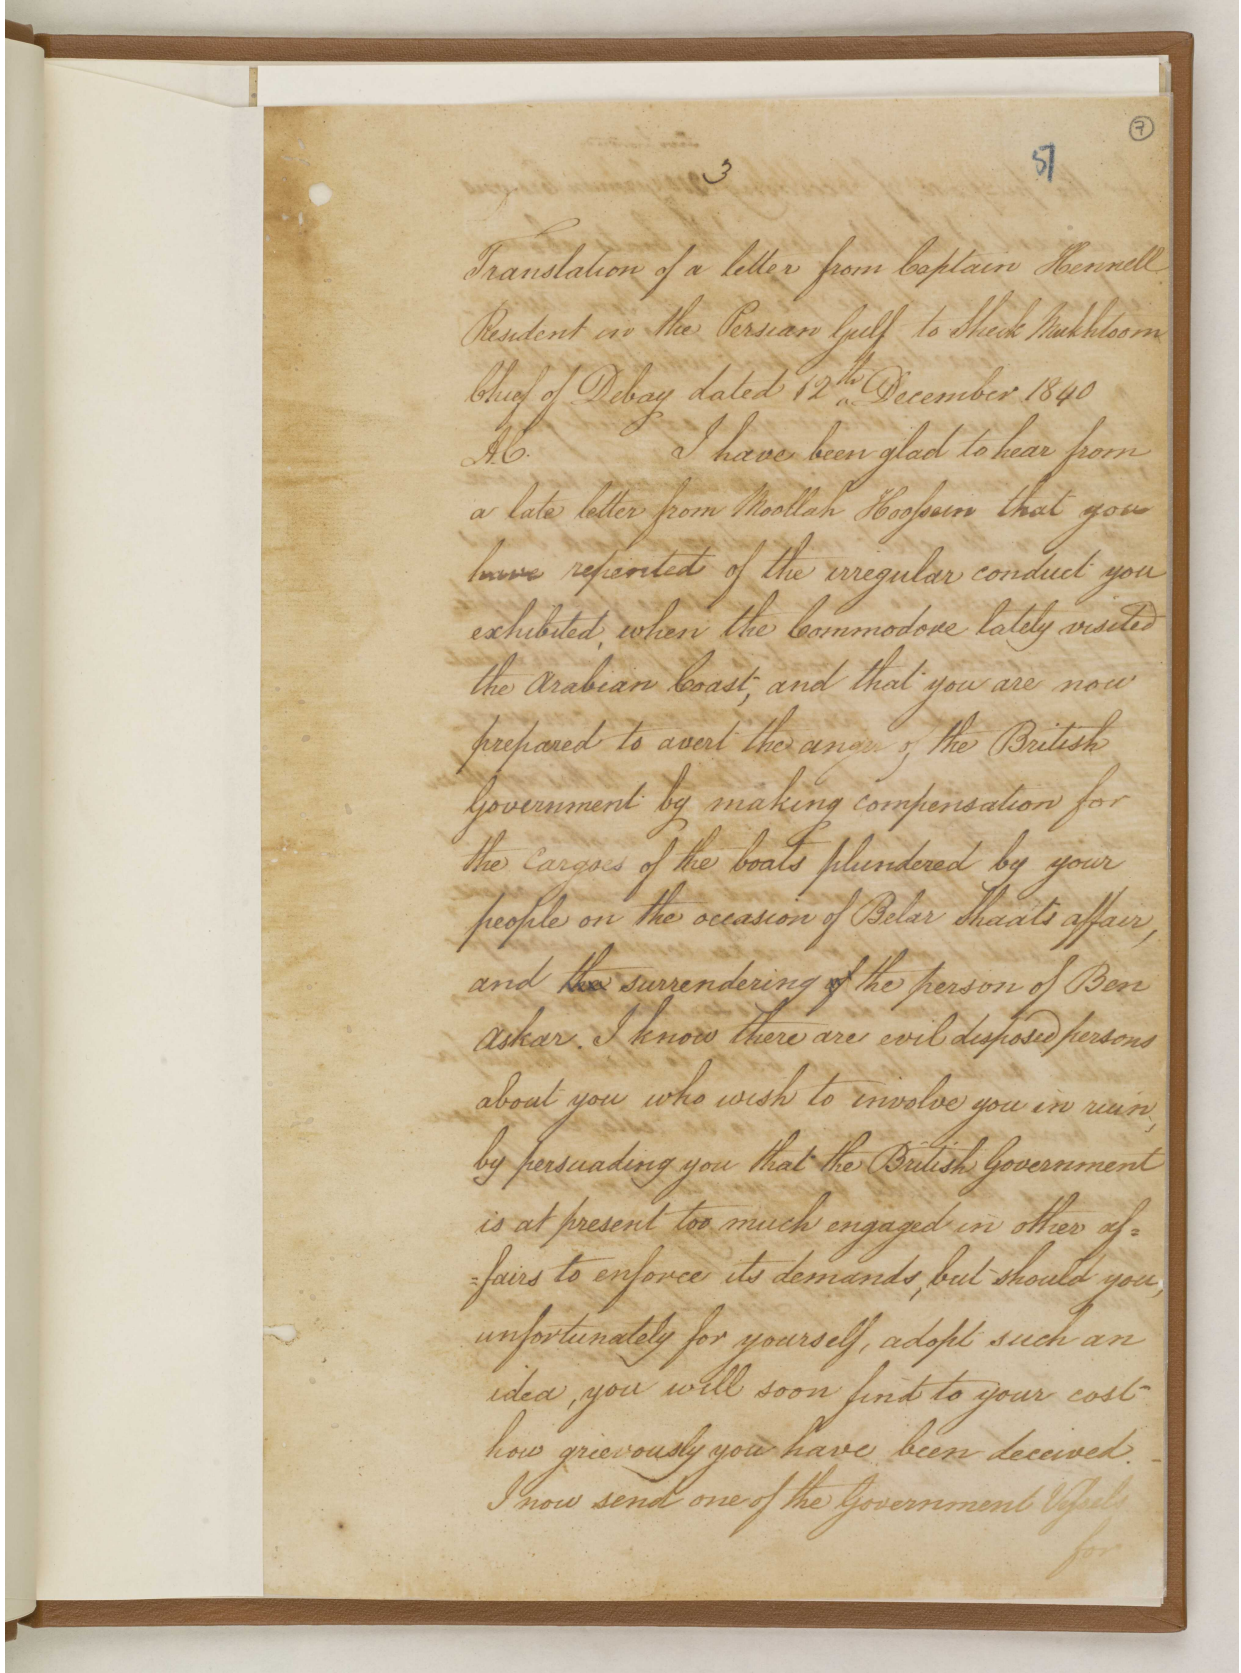 7
51
3
Translation of a letter from Captain Hennell
Resident in the Persian Gulf to Sheik Mukhtoom
Chief of Debay dated 12th December 1840
A.C. I have been glad to hear from
a late letter from Moollah Hoossein that you
have repented of the irregular conduct you
exhibited, when the Commodore lately visited
the Arabian Coast, and that you are now
prepared to avert the anger of the British
Government by making compensation for
the Cargoes of the boats plundered by your
people on the occasion of Belar Shaats affair,
and the surrendering of the person of Ben
Askar. I know there are evil disposed persons
about you who wish to involve you in ruin,
by persuading you that the British Government
is at present too much engaged in other af=
=fairs to enforce its demands, but should you,
unfortunately for yourself, adopt such an
idea, you will soon find to your cost
how grievously you have been deceived.
I now send one of the Government Vessels
for